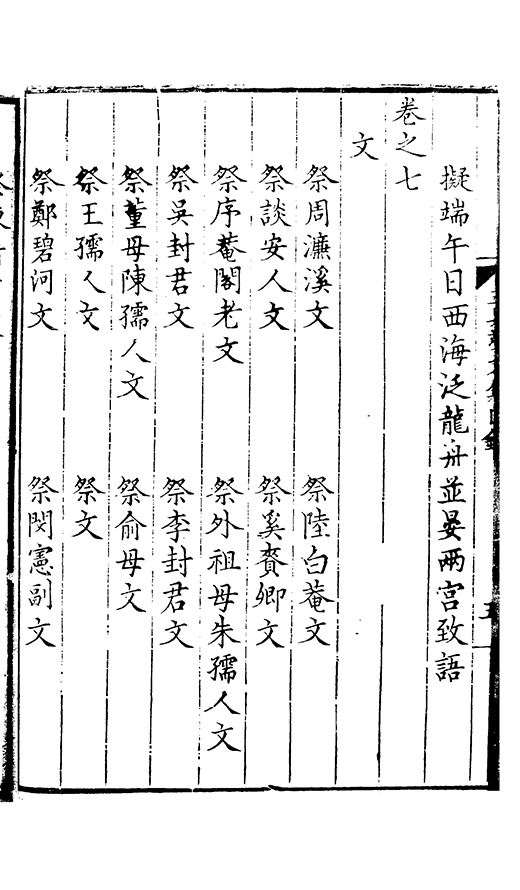 擬端午日西海泛龍舟並晏兩宮致語
卷之七
文
祭周濂溪文　祭陸白菴文
祭談安人文　祭奚賚卿文
祭序菴閣老文　祭外祖母朱孺人文
祭吳封君文　祭李封君文
祭董母陳孺人文　祭俞母文
祭王孺人文　祭文
祭鄭碧河文　祭閔憲副文